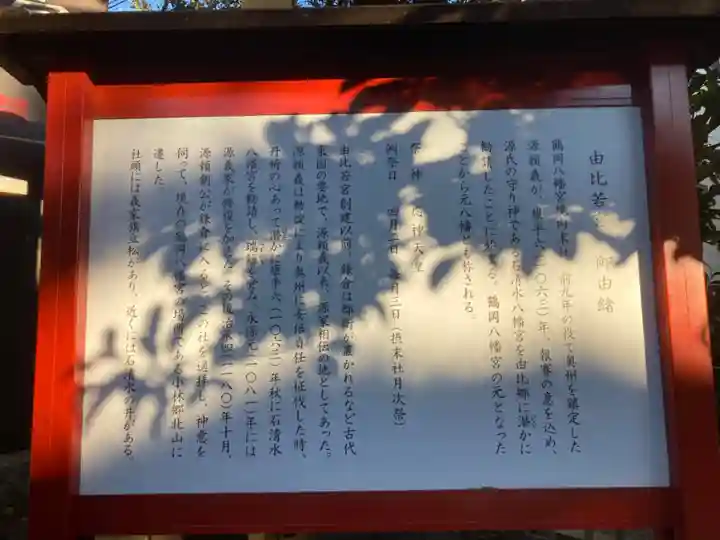 由比若宮 御由緒
鶴岡八幡宮境内末社 前九年の役で奥州を鎮定した
源頼義が、康平六(一〇六三)年、報賽の意を込め、
源氏の守り神である石清水八幡宮を由比郷に潜かに
勧請したことに始まる。鶴岡八幡宮の元となった
ことから元八幡とも称される。
祭神 応神天皇
例祭日 四月二日 毎月三日(摂末社月次祭)
由比若宮創建以前、鎌倉は郡衙が置かれるなど古代
東国の要地で、源頼義以来、源家相伝の地としてあった。
源頼義は勅定により奥州に安倍貞任を征伐した時、
丹祈の心あって潜かに康平六(一〇六三)年秋に石清水
八幡宮を勧請し、瑞籬を営み、永保元(一〇八一)年には
源義家が修復を加えた。その後治承四(一一八〇)年十月、
源頼朝公が鎌倉に入ると、この社を遥拝し、神意を
伺って、現在の鶴岡八幡宮の場所である小林郷北山に
遷した
社頭には義家旗立松があり、近くには石清水の井がある。